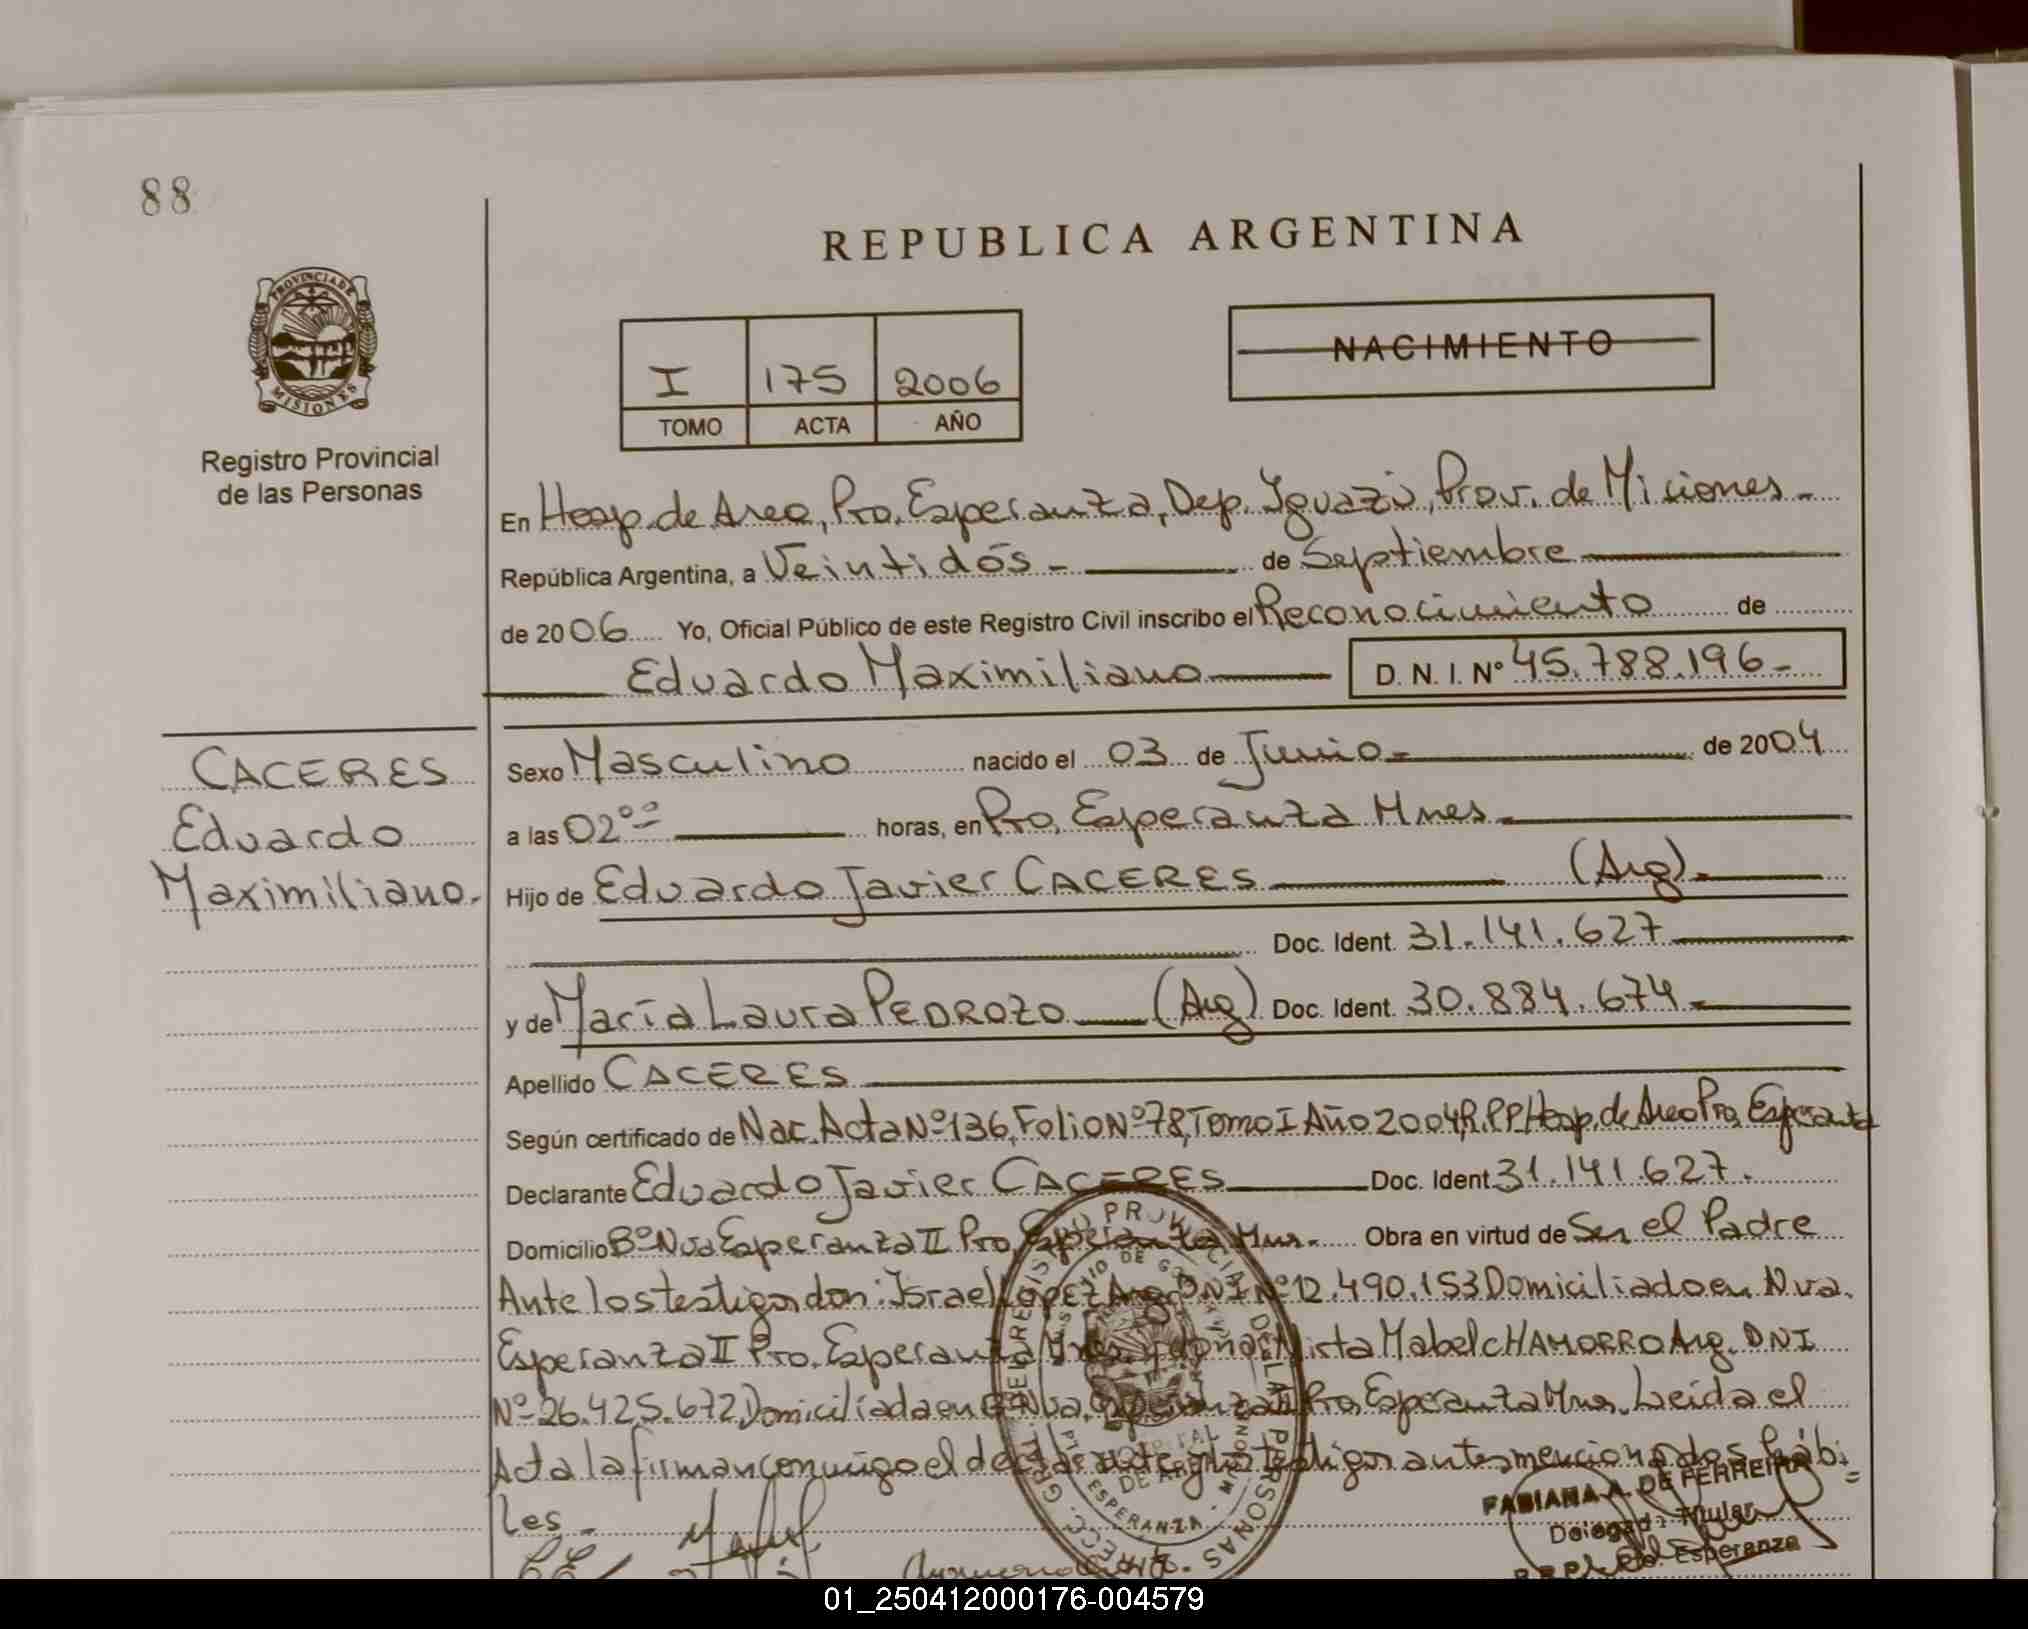 88
REPUBLICA ARGENTINA
PROVINCIA DE
MISIONES
Registro Provincial
de las Personas
I 175 2006
TOMO ACTA AÑO
NACIMIENTO
En Hosp. de Area, Pto. Esperanza, Dep. Iguazú, Prov. de Miciones -
República Argentina, a Veintidós - de Septiembre
de 2006 Yo, Oficial Público de este Registro Civil inscribo el Reconocimiento de
Eduardo Maximiliano D. N. I. Nº 45.788.196-
CACERES
Eduardo
Maximiliano.-
Sexo Masculino nacido el 03 de Junio - de 2004
a las 02°° horas, en Pto. Esperanza Mnes -
Hijo de Eduardo Javier CACERES (Arg).-
Doc. Ident. 31.141.627
y de María Laura PEDROZO (Arg) Doc. Ident. 30.884.674-
Apellido CACERES
Según certificado de Nac. Acta Nº 136, Folio Nº 78, Tomo I Año 2004, R.P.P. Hosp. de Area Pto. Esperanza
Declarante Eduardo Javier CACERES Doc. Ident. 31.141.627.
Domicilio Bº Nva Esperanza II Pto. Esperanza Mns.- Obra en virtud de Ser el Padre
Ante los testigos don: Israel LOPEZ Arg. DNI Nº 12.490.153 Domiciliado en Nva.
Esperanza II Pto. Esperanza Mnes. y doña Mirta Mabel CHAMORRO Arg. DNI
Nº 26.425.672 Domiciliada en Bº Nva. Esperanza II Pto. Esperanza Mns. Leida el
Acta la firman conmigo el declarante y los testigos antes mencionados hábi=
les -
FABIANA A. DE FERREIRA
Delegada Titular
R.P.P. Pto. Esperanza
01_250412000176-004579